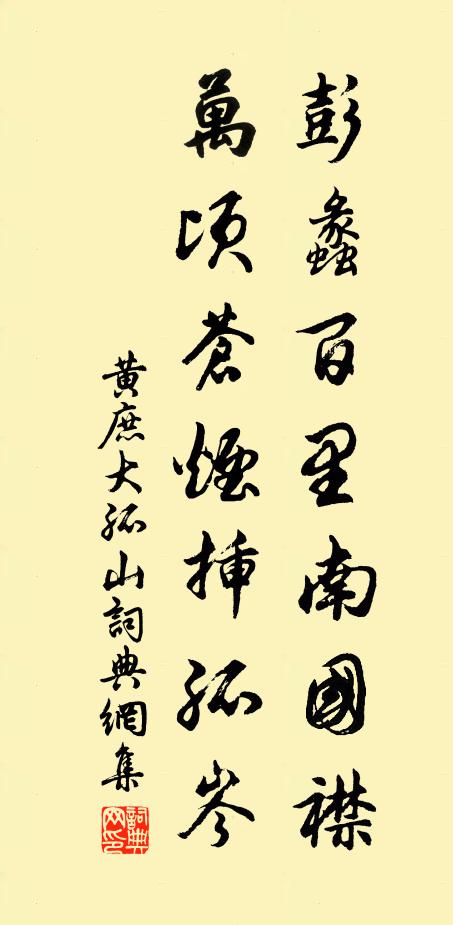 彭蠡百里南國襟
萬頃蒼煙插孤岑
黃庶大孤山詞典網集
詞典網印